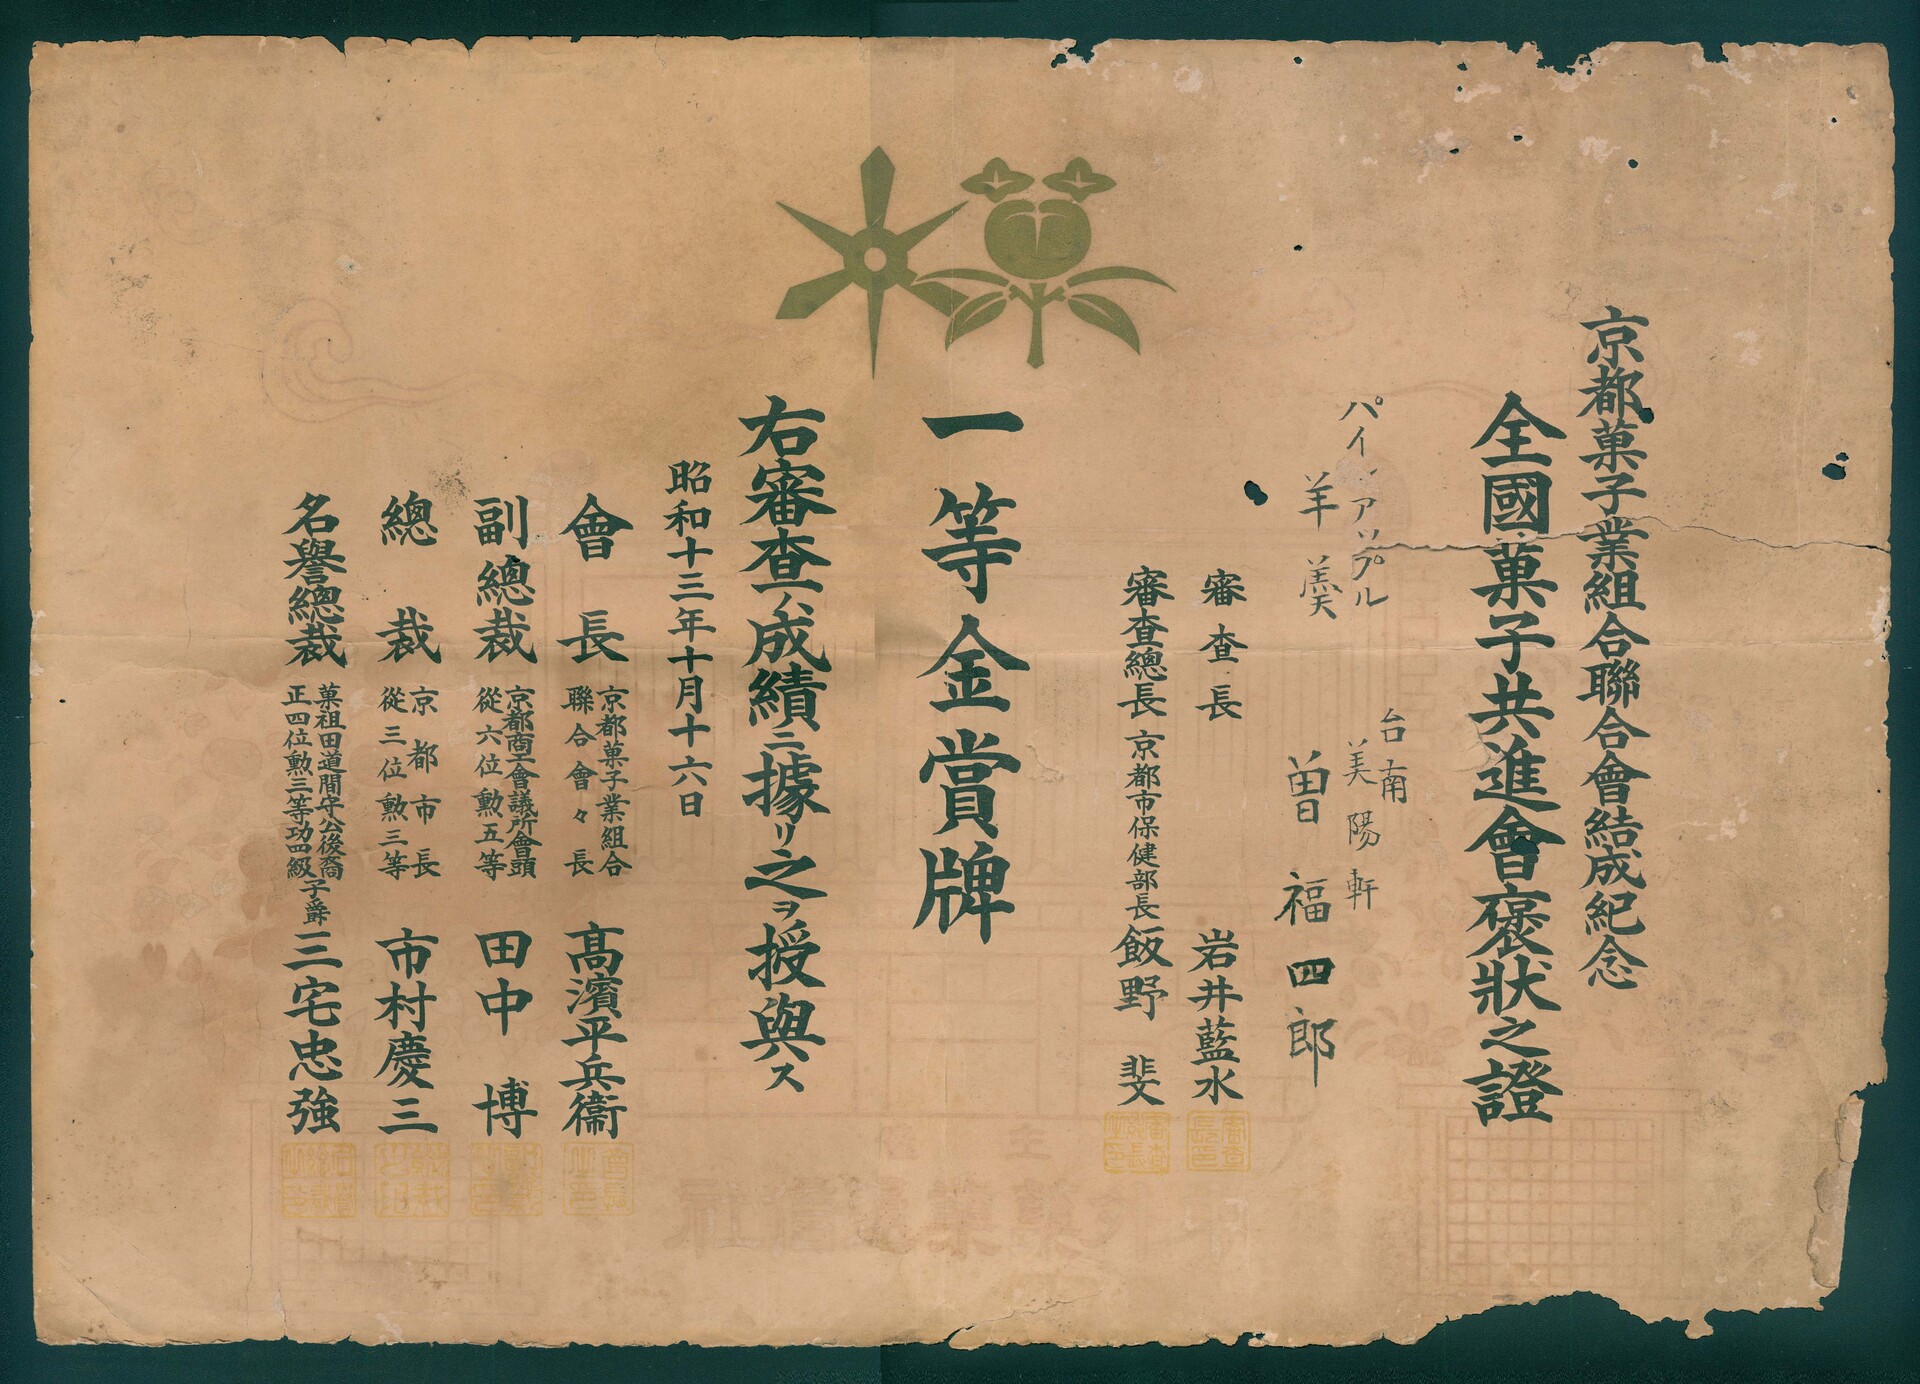 京都菓子業組合聯合會結成紀念
全國菓子共進會褒狀之證
パインアップル
羊羹
台南
美陽軒
曽福四郎
審查長 岩井藍水
審查總長 京都市保健部長 飯野斐
一等金賞牌
右審查ノ成績ニ據リ之ヲ授與ス
昭和十三年十月十六日
會長 京都菓子業組合聯合會々長 髙濱平兵衞
副總裁 京都商工會議所會頭 從六位勲五等 田中博
總裁 京都市長 從三位勲三等 市村慶三
名譽總裁 菓祖田道間守公後裔 正四位勲三等功四級 子爵 三宅忠強